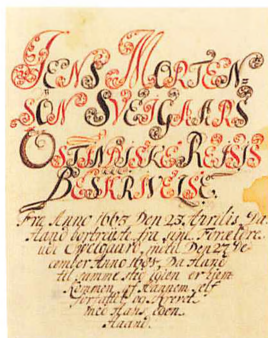 JENS MORTEN=
SØN SVEIGAARS
OSTINDISKE REISIS
BESKRIVELSE.
Fra Anno 1665 Den 23 Aprilis, Da
Hand bortreiste fra sine Forældre
Anno 1685. Da Hand
til samme sted igien er hjem
Kommen, af Hannem self
forfattet og skrevet
med Hans egen
Haand.